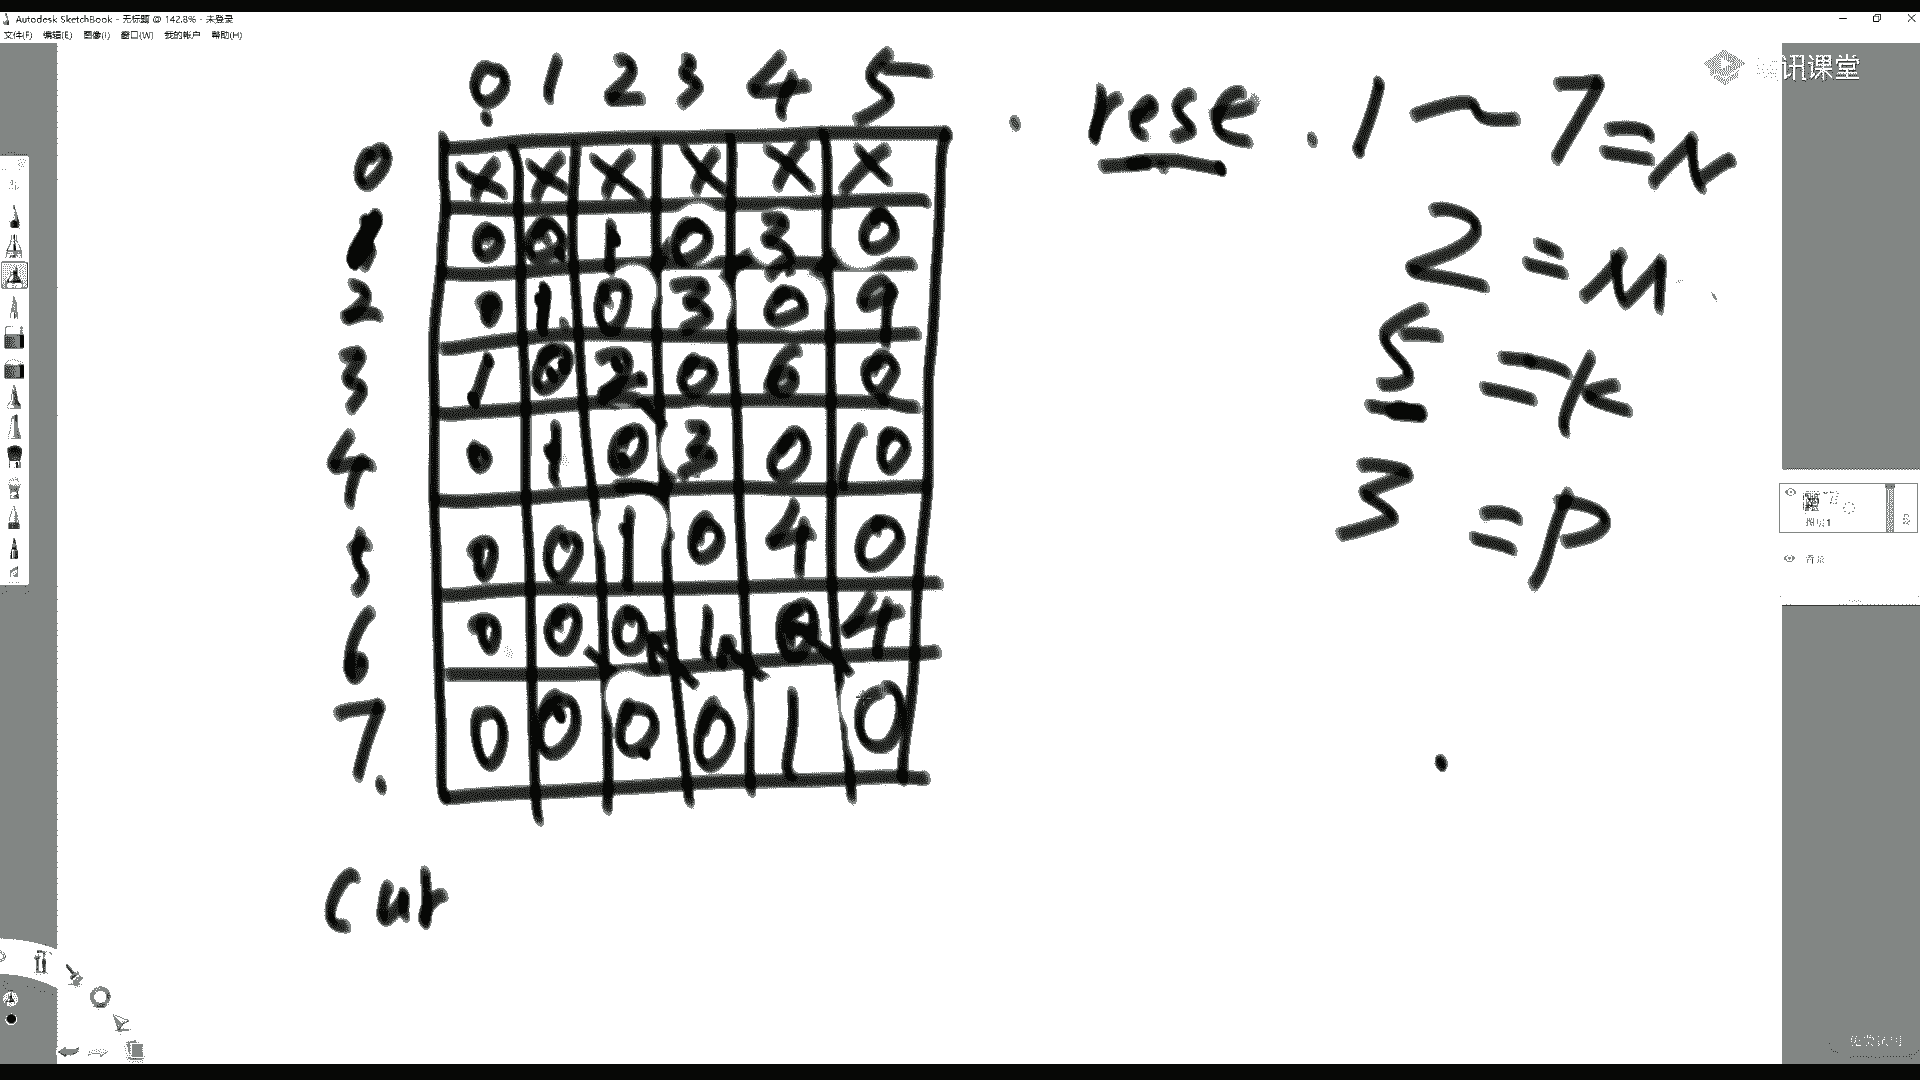 Autodesk SketchBook - 无标题 @ 142.8% - 未登录
文件(F) 编辑(E) 图像(I) 窗口(W) 我的帐户 帮助(H)
讯课堂
0 1 2 3 4 5
0 x x x x x x
1 0 0 1 0 3 0
2 0 1 0 3 0 9
3 1 0 2 0 6 0
4 0 1 0 3 0 10
5 0 0 1 0 4 0
6 0 0 0 1 0 4
7 0 0 0 0 1 0
cur
rese 1~7=N
2=M
5=K
3=P
图层1
背景